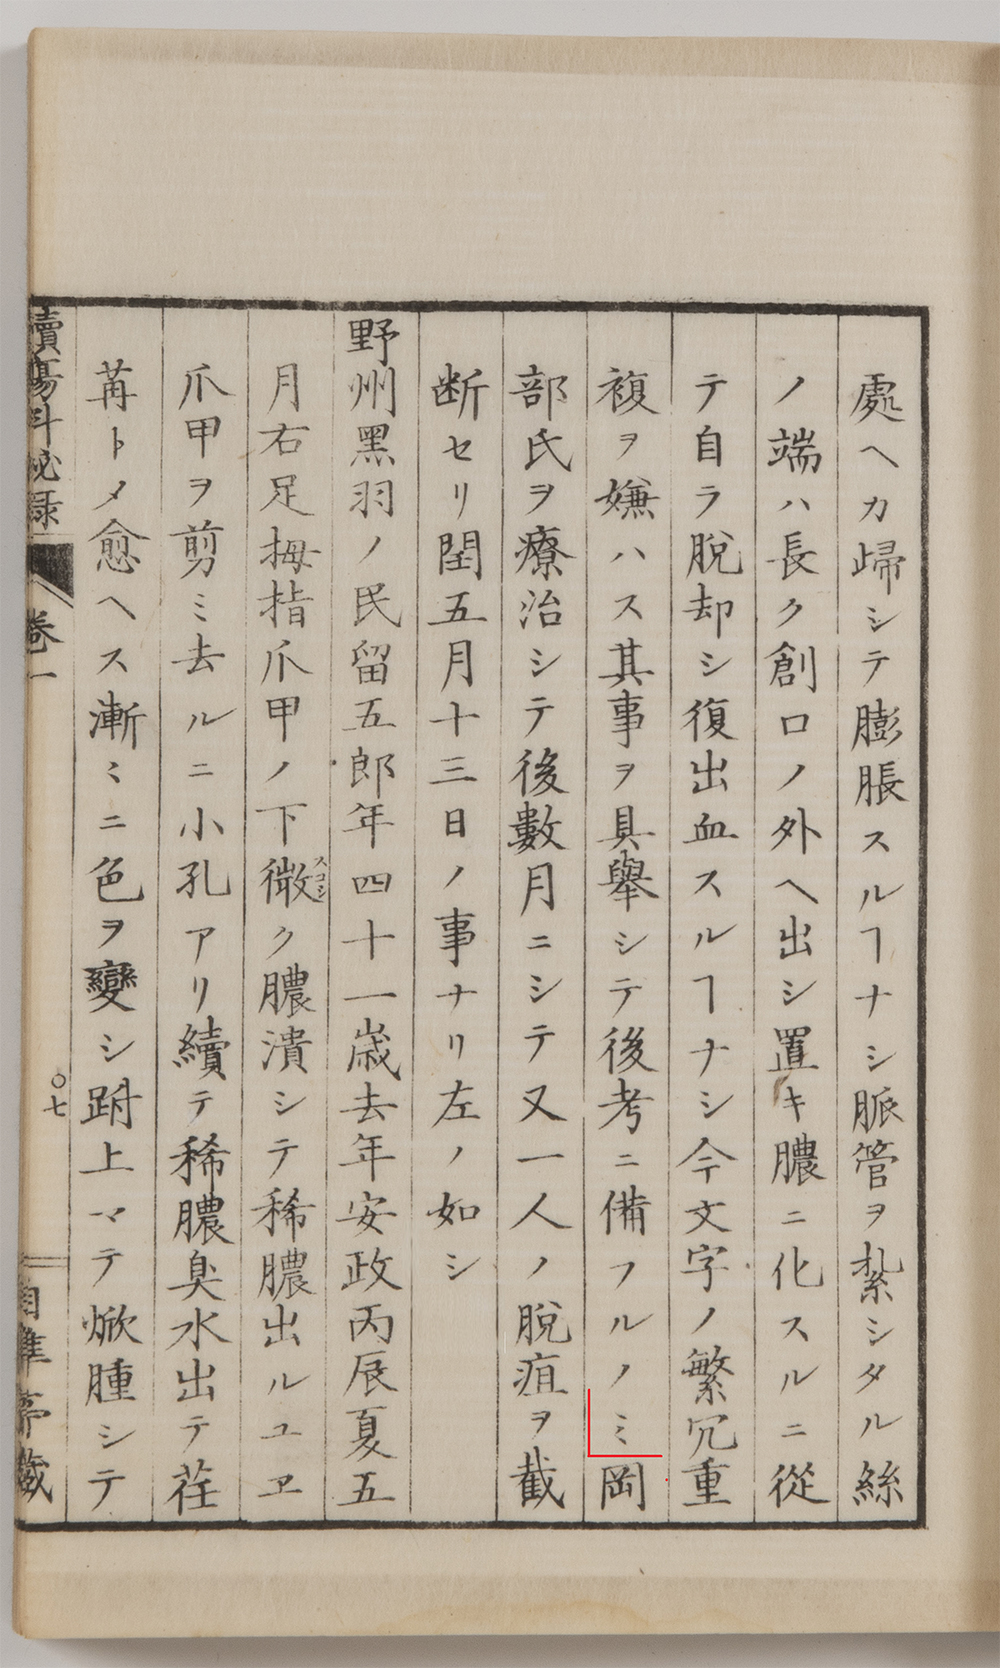 處ヘカ歸シテ膨脹スルヿナシ脈管ヲ紮シタル絲
ノ端ハ長ク創口ノ外ヘ出シ置キ膿ニ化スルニ從
テ自ラ脫却シ復出血スルヿナシ今文字ノ繁冗重
複ヲ嫌ハス其事ヲ具舉シテ後考ニ備フルノミ岡
部氏ヲ療治シテ後數月ニシテ又一人ノ脫疽ヲ截
断セリ閏五月十三日ノ事ナリ左ノ如シ
野州黑羽ノ民留五郎年四十一歲去年安政丙辰夏五
月右足拇指爪甲ノ下微スコシク膿潰シテ稀膿出ルユヱ
爪甲ヲ剪ミ去ルニ小孔アリ續テ稀膿臭水出テ荏
苒トメ愈ヘス漸ミニ色ヲ變シ跗上マテ焮腫シテ
續瘍科秘録 卷一 〇七 自準亭藏